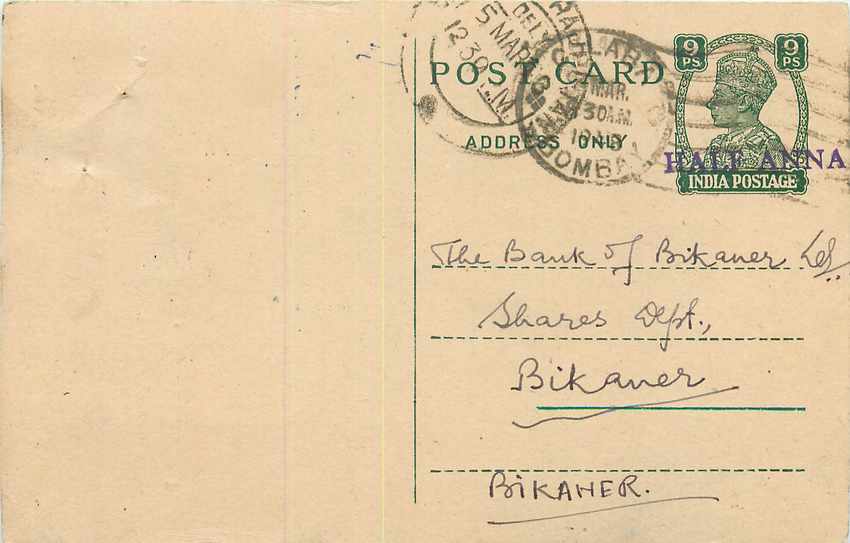 POST CARD
ADDRESS ONLY
9 PS 9 PS
INDIA POSTAGE
HALF ANNA
5 MAR
12 30
MAR.
BOMBAY
The Bank of Bikaner Ld.,
Shares Dept.,
Bikaner
BIKANER.